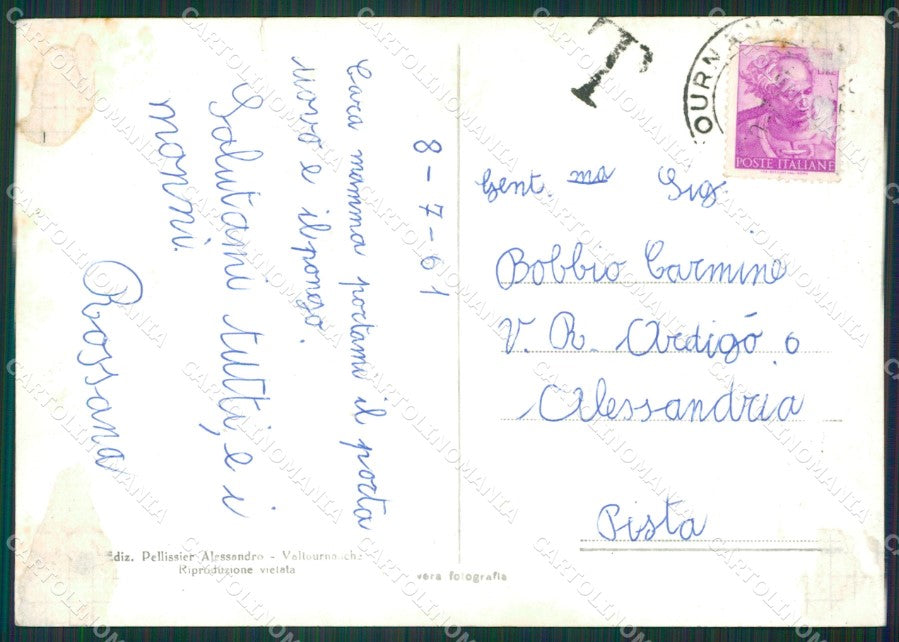 8-7-61
Cara mamma portami il porta
uovo e il pongo.
Salutami tutti, e i
nonni.
Rossana
T
OURNANC
POSTE ITALIANE
Gent. ma Sig
Bobbio Carmine
V. R. Ardigó 6
Alessandria
Pista
diz. Pellissier Alessandro - Valtournanche
Riproduzione vietata
vera fotografia
CARTOLINOMANIA